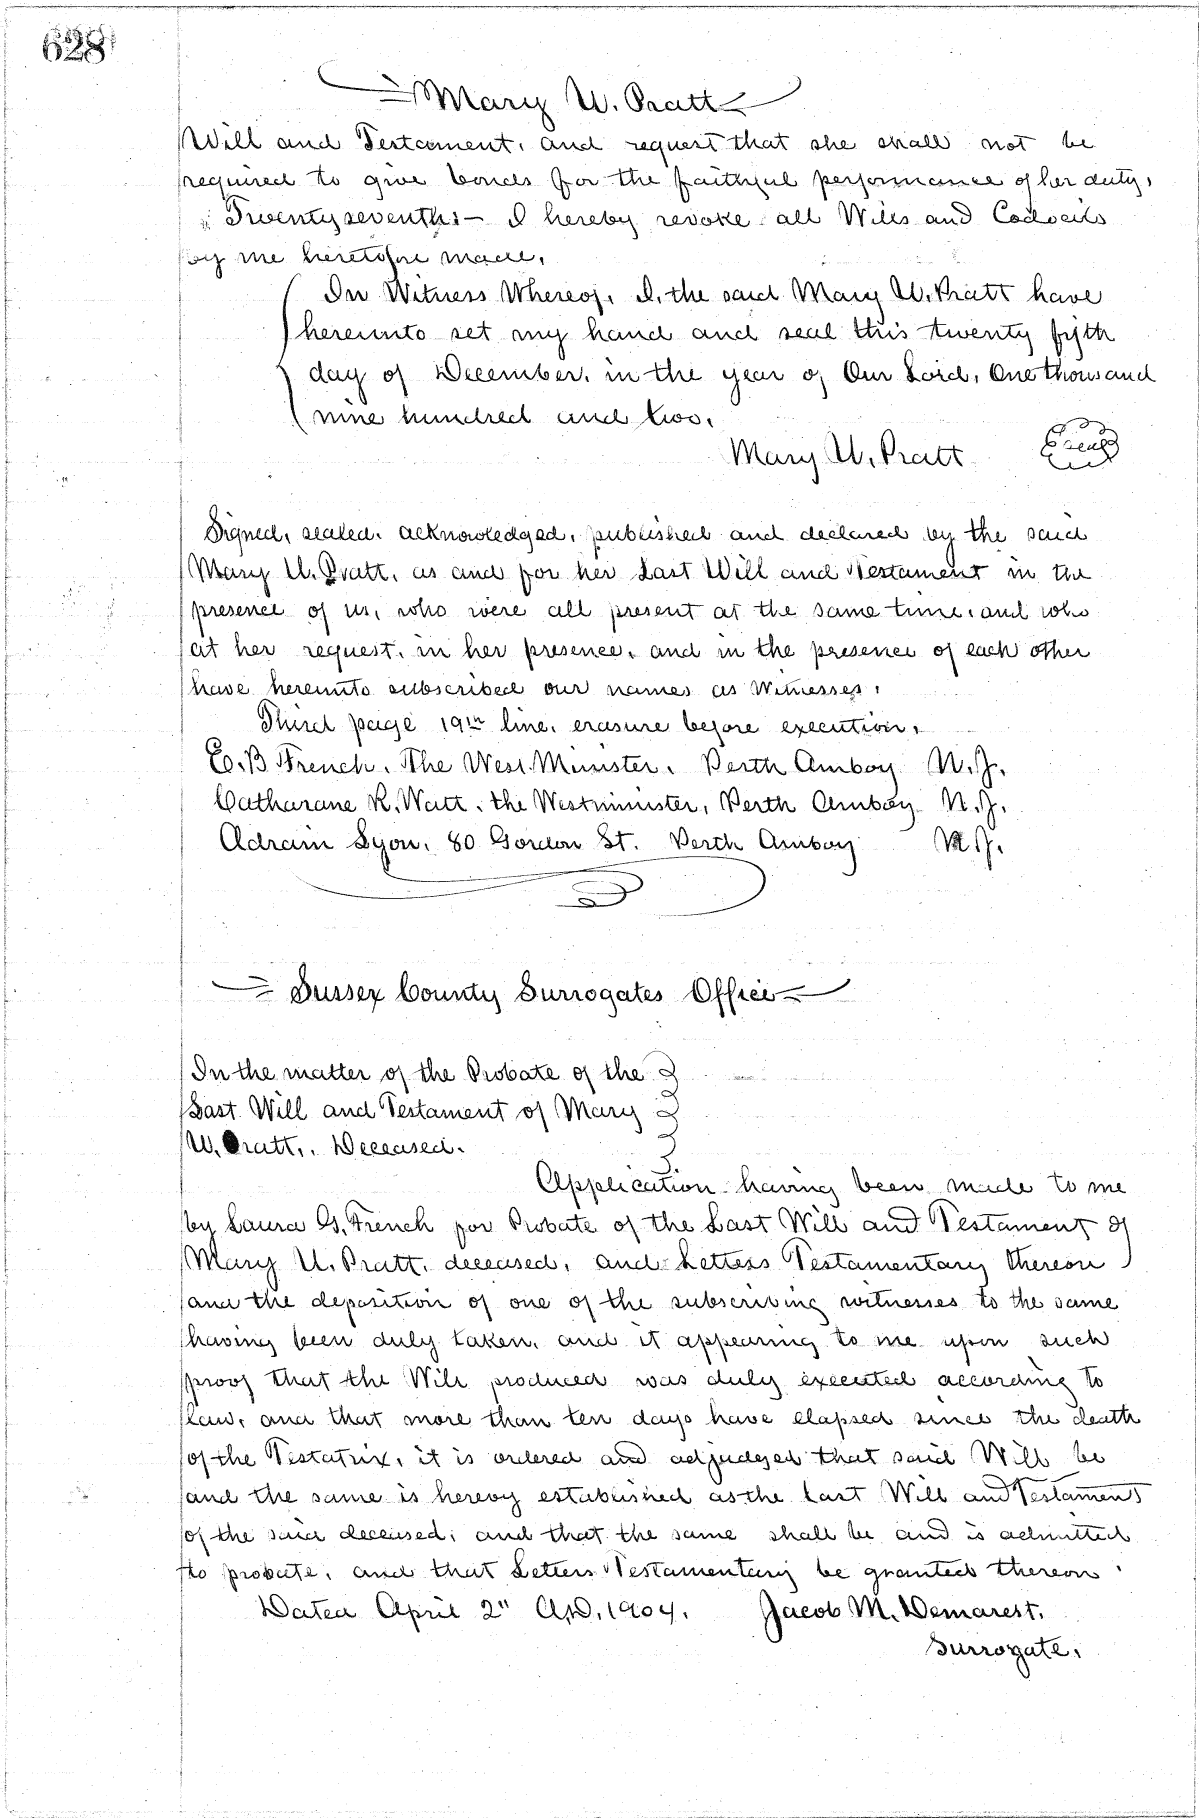 628
Mary W. Pratt
Will and Testament, and request that she shall not be
required to give bonds for the faithful performance of her duty,
Twentyseventh:- I hereby revoke all Wills and Codocils
by me heretofore made.
In Witness Whereof, I, the said Mary W. Pratt have
hereunto set my hand and seal this twenty fifth
day of December, in the year of Our Lord, One thousand
nine hundred and two.
Mary W. Pratt Seal
Signed, sealed, acknowledged, published and declared by the said
Mary W. Pratt, as and for her Last Will and Testament in the
presence of us, who were all present at the same time, and who
at her request, in her presence, and in the presence of each other
have hereunto subscribed our names as Witnesses.
Third page 19th line, erasure before execution.
E. B French, The West Minister, Perth Amboy N. J.
Catharane R. Watt, the Westminister, Perth Amboy N. J.
Adrain Lyon, 80 Gordon St. Perth Amboy N. J.
Sussex County Surrogates Office
In the matter of the Probate of the
Last Will and Testament of Mary
W. Pratt, Deceased.
Application having been made to me
by Laura G. French for Probate of the Last Will and Testament of
Mary W. Pratt, deceased, and Letters Testamentary thereon
and the deposition of one of the subscribing witnesses to the same
having been duly taken, and it appearing to me upon such
proof that the Will produced was duly executed according to
law, and that more than ten days have elapsed since the death
of the Testatrix, it is ordered and adjudged that said Will be
and the same is hereby established as the last Will and Testament
of the said deceased, and that the same shall be and is admitted
to probate, and that Letters Testamentary be granted thereon.
Dated April 2" A.D. 1904. Jacob M. Demarest.
Surrogate.